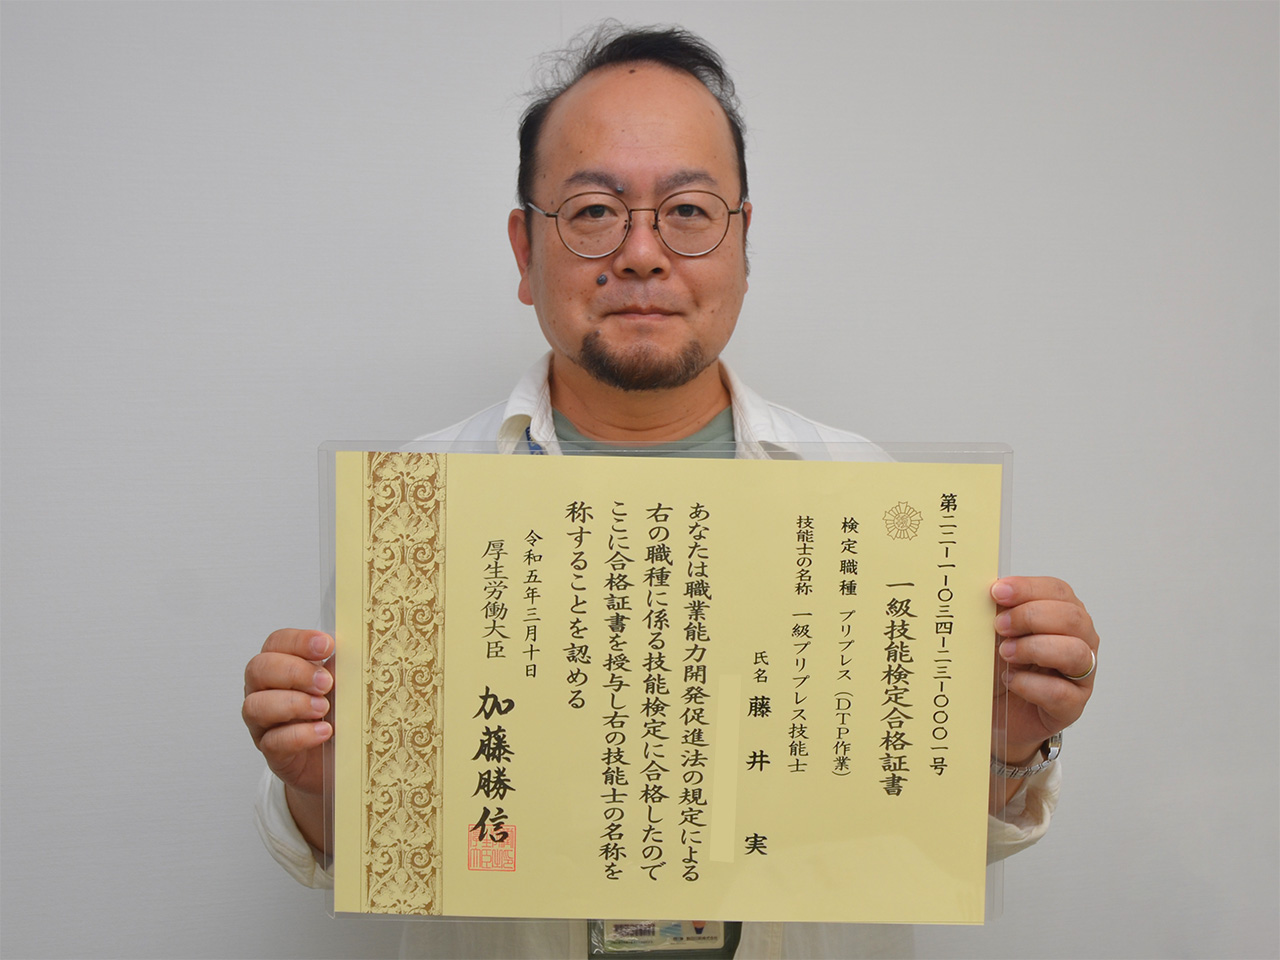 第二二ー一ー〇三四ー二三ー〇〇〇一号
一級技能検定合格証書
検定職種 プリプレス（DTP作業）
技能士の名称 一級プリプレス技能士
氏名 藤井 実
あなたは職業能力開発促進法の規定による
右の職種に係る技能検定に合格したので
ここに合格証書を授与し右の技能士の名称を
称することを認める
令和五年三月十日
厚生労働大臣
加藤勝信